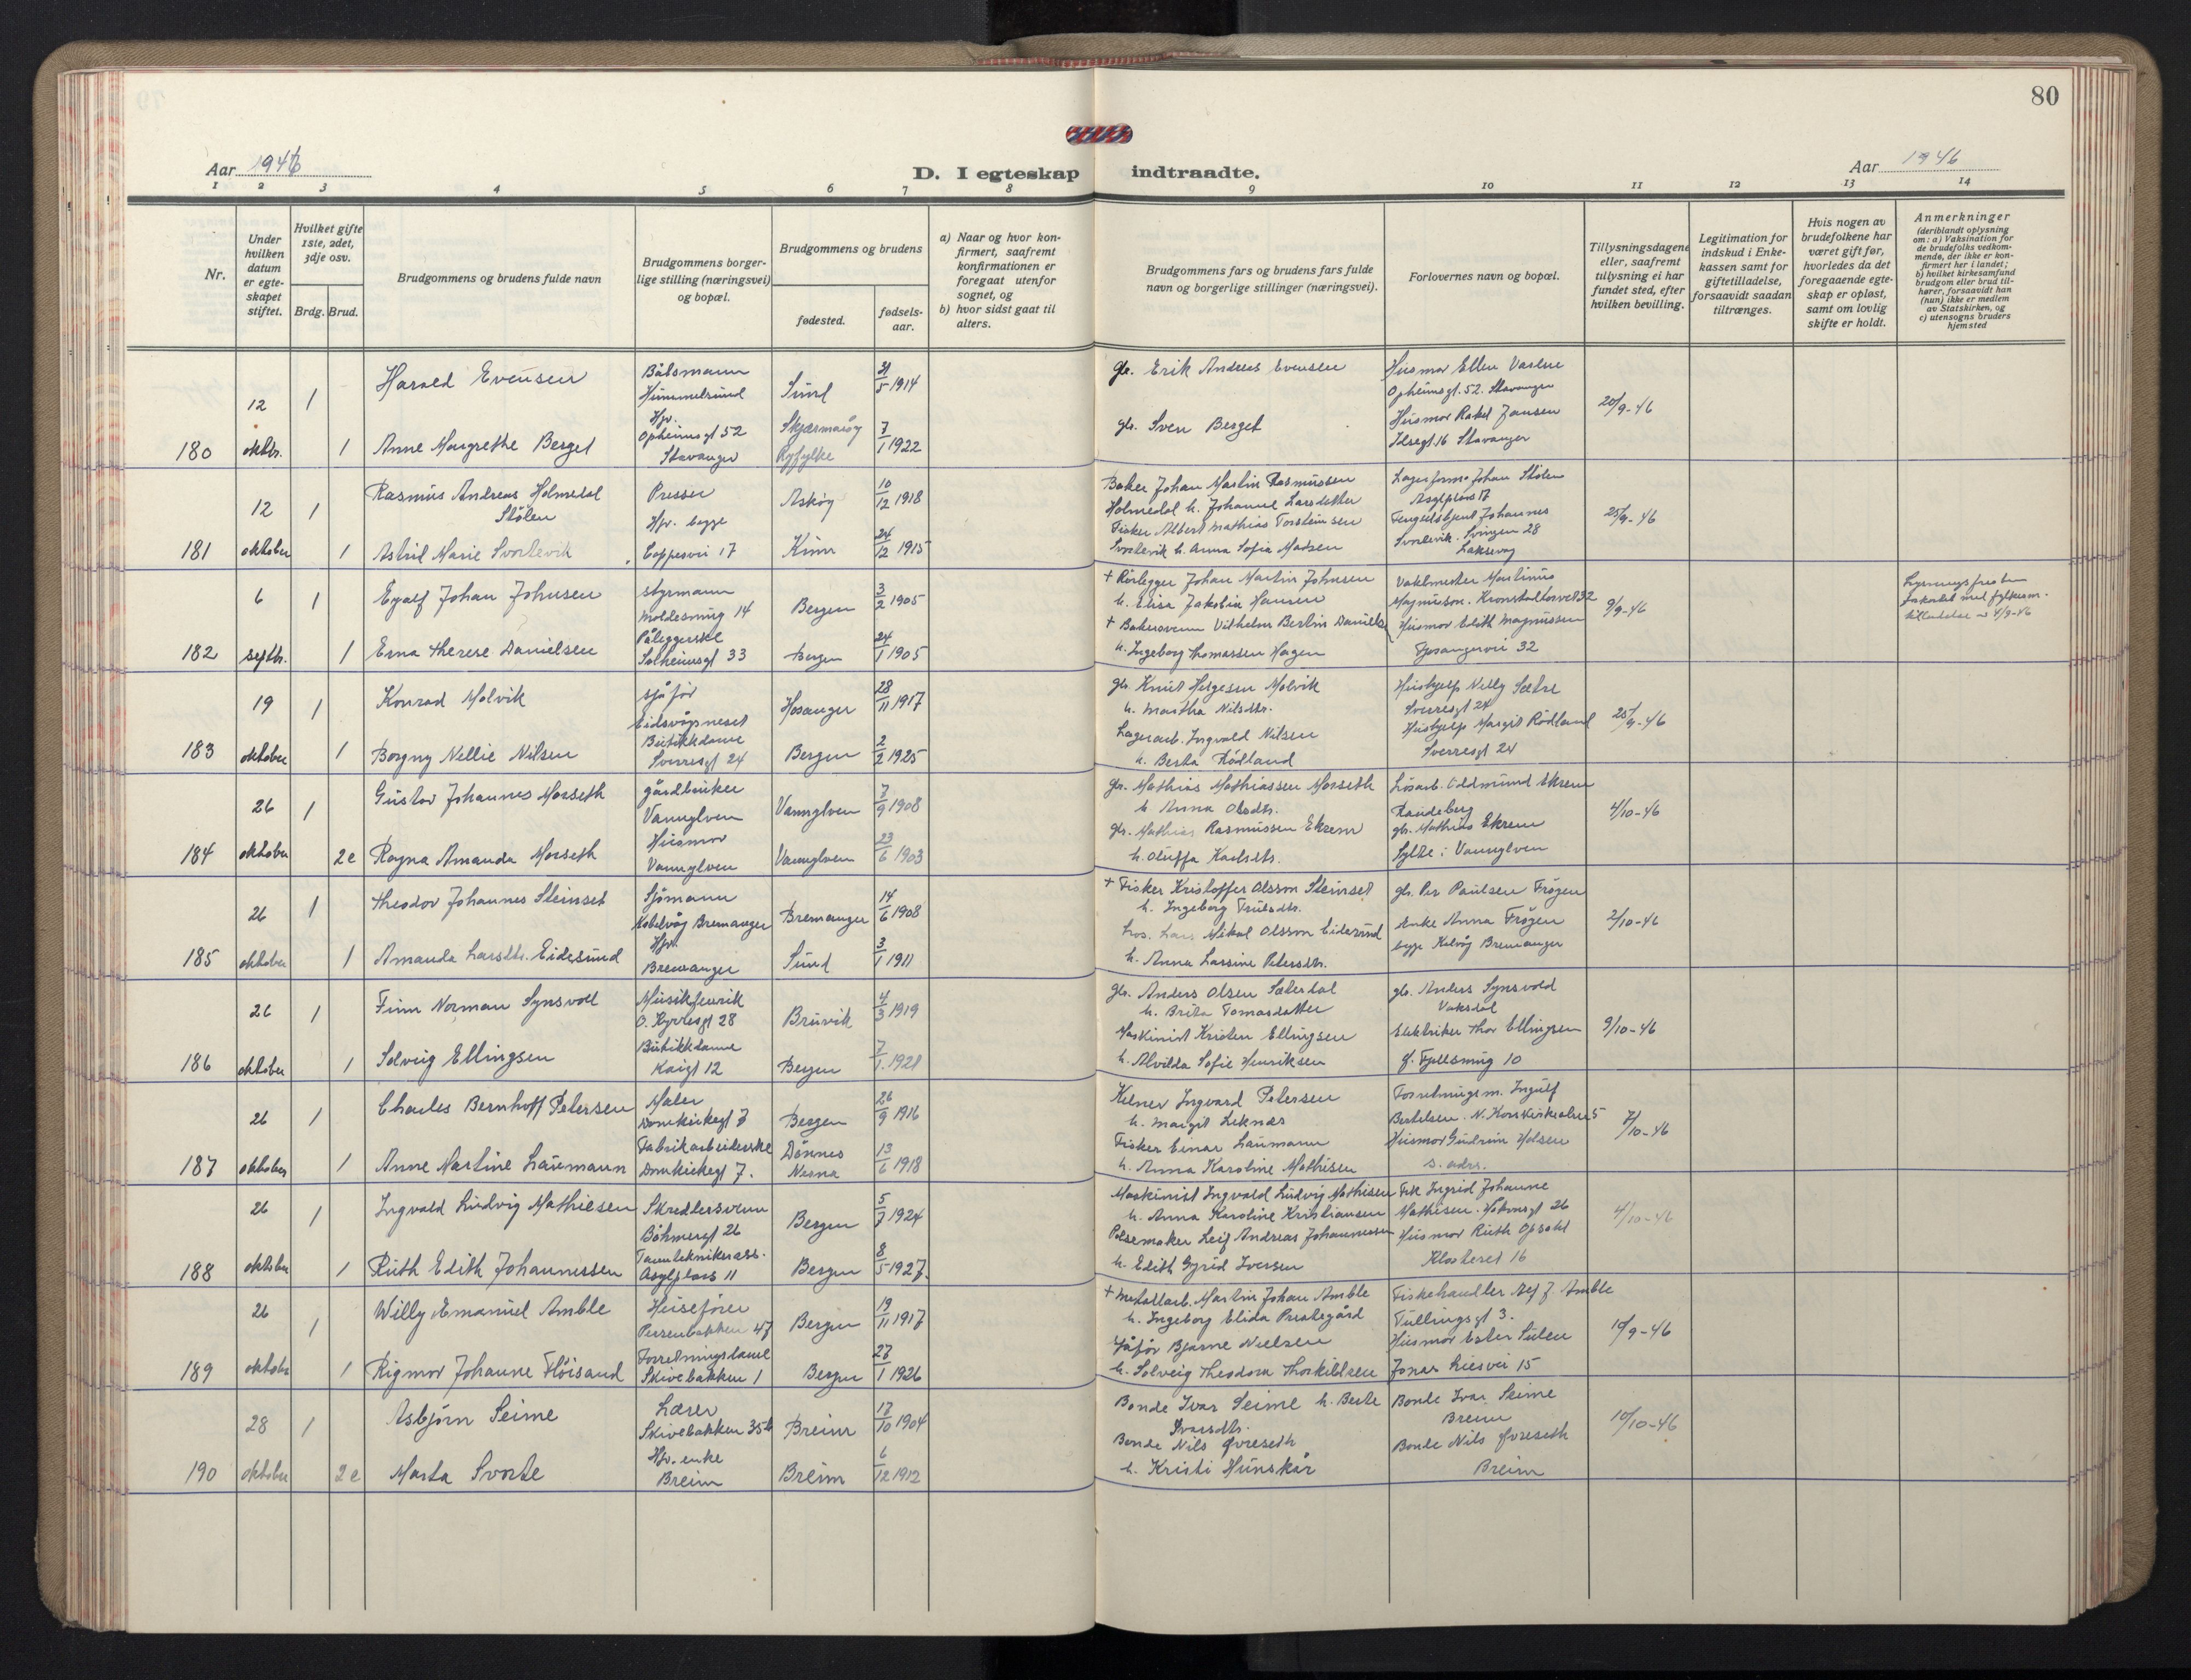 80
Aar 1946
D. I egteskap indtraadte.
Aar 1946
1 2 3 4 5 6 7 8 9 10 11 12 13 14
Nr.
Under hvilken datum er egte-skapet stiftet.
Hvilket gifte 1ste, 2det, 3dje osv.
Brdg. Brud.
Brudgommens og brudens fulde navn
Brudgommens borger-lige stilling (næringsvei) og bopæl.
Brudgommens og brudens
fødested.
fødsels-aar.
a) Naar og hvor kon-firmert, saafremt konfirmationen er foregaat utenfor sognet, og
b) hvor sidst gaat til alters.
Brudgommens fars og brudens fars fulde navn og borgerlige stillinger (næringsvei).
Forlovernes navn og bopæl.
Tillysningsdagene eller, saafremt tillysning ei har fundet sted, efter hvilken bevilling.
Legitimation for indskud i Enke-kassen samt for giftetilladelse, forsaavidt saadan tiltrænges.
Hvis nogen av brudefolkene har været gift før, hvorledes da det foregaaende egte-skap er opløst, samt om lovlig skifte er holdt.
Anmerkninger (deriblandt oplysning om: a) Vaksination for de brudefolks vedkom-mende, der ikke er kon-firmert her i landet; b) hvilket kirkesamfund brudgom eller brud til-hører, forsaavidt han (hun) ikke er medlem av Statskirken, og c) utensogns bruders hjemsted
180 12 oktbr. 1 1
Harald Evensen
Anne Margrethe Berget
Båtsmann
Hummelsund
Hjv.
Opheimsgt 52
Stavanger
Sund 31/5 1914
Skjærmarøy Ryfylke 7/1 1922
gb. Erik Andreas Evensen
gb. Sven Berget
Husmor Ellen Varlne
Opheimsgt. 52. Stavanger
Husmor Rakel Jansen
Ilsegt. 16 Stavanger
20/9-46
181 12 oktober 1 1
Rasmus Andreas Holmedal
Stølen
Astrid Marie Svortevik
Presser
Hjv. begge
Coppesvei 17
Askøy 10/12 1918
Kinn 24/12 1915
Baker Johan Martin Rasmussen
Holmedal h. Johanne Larsdatter
Fisker Albert Mathias Torsteinsen
Svortevik h. Anna Sofia Madsen
Lagerform. Johan Stølen
Asylplass 17
Fengselsbetjent Johannes
Svortevik. Svingen 28
Laksevåg
25/9-46
182 6 septbr. 1 1
Egalf Johan Johnsen
Erna Therese Danielsen
styrmann
Moldesmug 14
Påleggerske
Solheimsgt 33
Bergen 3/2 1905
Bergen 24/1 1905
+ Rørlegger Johan Martin Johnsen
h. Elise Jakobia Hansen
+ Bakersvenn Vilhelm Bertin Danielse
h. Ingeborg Thomassen Hagen
Vaktmester Martinus
Magnuson. Kronstadtorvet 32
Husmor Edith Magnussen
Fjøsangervei 32
9/9-46
Lysningsfristen
forkortet med fylkesm.
tilladelse av 4/9-46
183 19 oktober 1 1
Konrad Molvik
Borgny Nellie Nilsen
sjåfør
Eidsvågneset
Butikkdame
Sverresgt 24
Hosanger 28/11 1917
Bergen 2/2 1925
gb. Knut Helgesen Molvik
h. Martha Nilsdtr.
Lagerarb. Ingvald Nilsen
h. Berta Rødland
Hushjelp Nelly Sætre
Sverresgt 24
Hushjelp Margit Rødland
Sverresgt 24
25/9-46
184 26 oktober 1 2e
Gustav Johannes Morseth
Ragna Amanda Morseth
gårdbruker
Vannylven
Husmor
Vannylven
Vannylven 7/9 1908
Vannylven 23/6 1903
gb. Mathias Mathiassen Morseth
h. Anna Olsdtr.
gb. Mathias Rasmussen Ekrem
h. Oluffa Karlsdtr.
Løsarb. Oddmund Ekrem
Raudeberg
gb. Mathias Ekrem
Sylte i Vannylven
4/10-46
185 26 oktober 1 1
Theodor Johannes Steinset
Amanda Larsdtr. Eidesund
Sjømann
Kalvåg Bremanger
Hjv.
Bremanger
Bremanger 14/6 1908
Sund 3/1 1911
+ Fisker Kristoffer Olsson Steinset
h. Ingeborg Trulsdtr.
Lars Mikal Olsson Eidesund
h. Anna Larsine Petersdtr.
gb. Per Paulsen Frøyen
Enke Anna Frøyen
begge Kalvåg Bremanger
2/10-46
186 26 oktober 1 1
Finn Norman Synsvoll
Solveig Ellingsen
Musikkfenrik
O. Kyrresgt 28
Butikkdame
Kaigt 12
Bruvik 4/3 1919
Bergen 7/1 1921
gb. Anders Olsen Sæterdal
h. Brita Tomasdatter
Maskinist Kristen Ellingsen
h. Alvilda Sofie Henriksen
gb. Anders Synsvold
Vaksdal
Elektriker Thor Ellingsen
Ø. Fjellsmug 10
9/10-46
187 26 oktober 1 1
Charles Bernhoff Petersen
Anne Martine Laumann
Maler
Domkirkegt 7
Fabrikarbeiderske
Domkirkegt 7.
Bergen 26/9 1916
Dønnes Nesna 13/6 1918
Kelner Ingvard Petersen
h. Margit Leknes
Fisker Einar Laumann
h. Anna Karoline Mathisen
Forretningsm. Ingulf
Bertelsen. N. Korskirkealm 5
Husmor Gudrun Holsen
s. adrs.
7/10-46
188 26 oktober 1 1
Ingvald Ludvig Mathiesen
Ruth Edith Johannessen
Skreddersvenn
Bøhmergt 26
Tannteknikerass.
Asylplass 11
Bergen 5/7 1924
Bergen 8/5 1927.
Maskinist Ingvald Ludvig Mathisen
h. Anna Karoline Kristiansen
Pølsemaker Leif Andreas Johannessen
h. Edith Gyrid Iversen
Frk Ingrid Johanne
Mathisen. Håkonsgt 26
Husmor Ruth Opsahl
Klosteret 16
4/10-46
189 26 oktober 1 1
Willy Emanuel Amble
Rigmor Johanne Fløisand
Heisefører
Persenbakken 47
Forretningsdame
Skivebakken 1
Bergen 19/11 1917
Bergen 27/1 1926
+ Metallarb. Martin Johan Amble
h. Ingeborg Elida Prestegård
Sjåfør Bjarne Nielsen
h. Solveig Theodora Thorkildsen
Fiskehandler Alf J. Amble
Tullingsgt 3.
Husmor Ester Sulen
Jonas Liesvei 15
10/9-46
190 28 oktober 1 2e
Asbjørn Seime
Marta Svorte
Lærer
Skivebakken 35b
Hjv. enke
Breim
Breim 17/10 1904
Breim 6/12 1912
Bonde Ivar Seime h. Berte
Ivarsdtr.
Bonde Nils Øvreseth
h. Kristi Hunskår
Bonde Ivar Seime
Breim
Bonde Nils Øvreseth
Breim
10/10-46